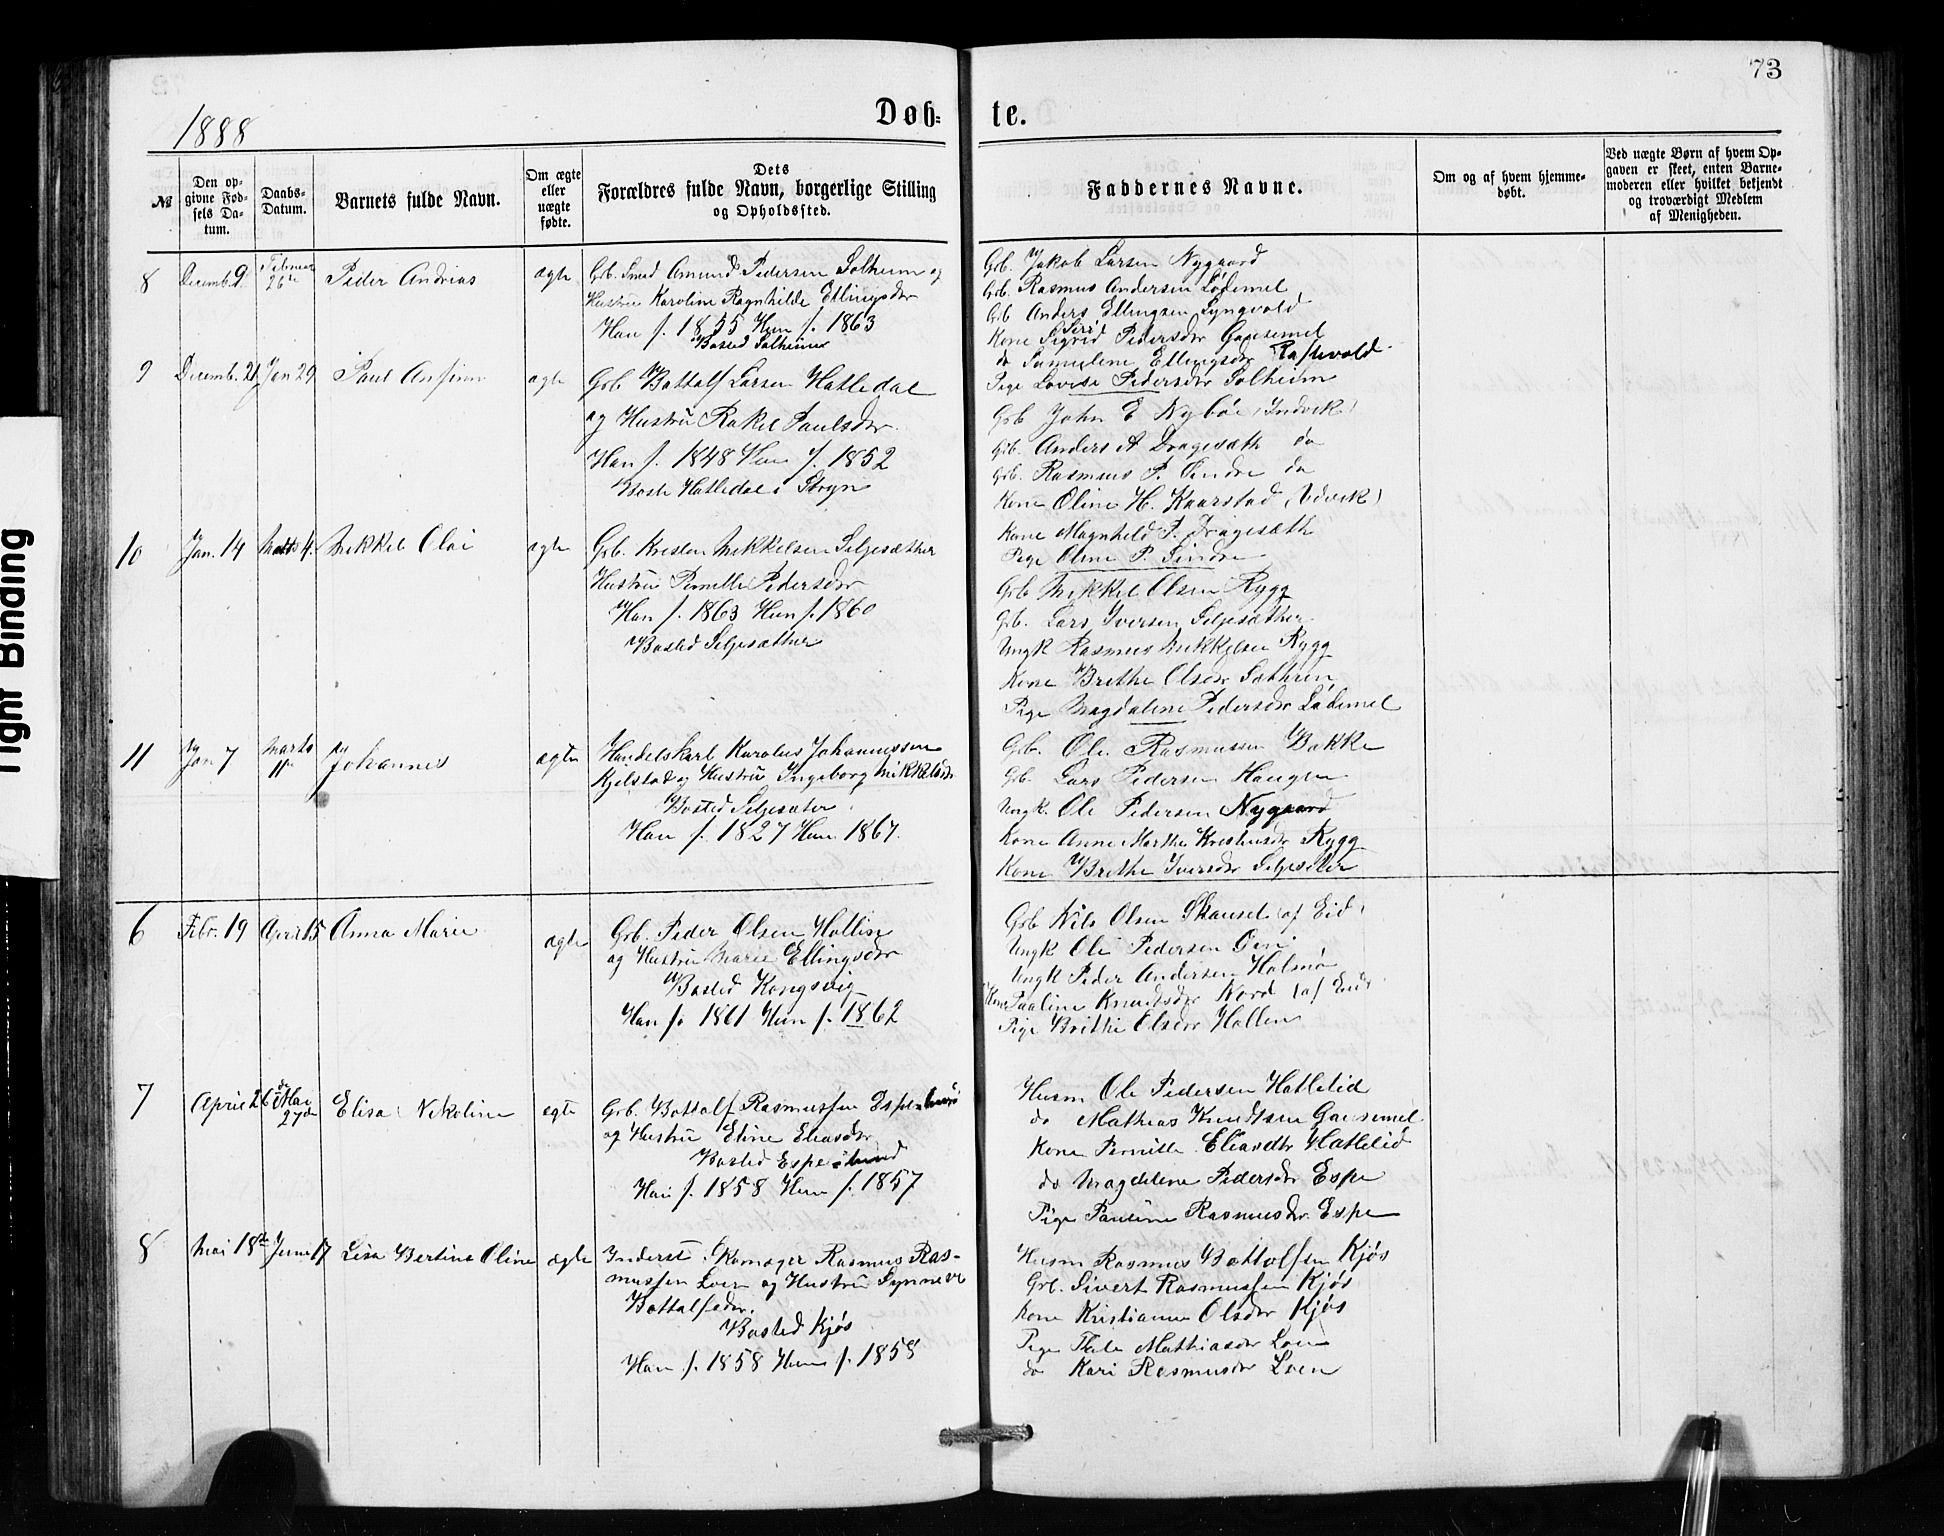 73
Døb-
te.
1888
№
Den opgivne Fødsels Datum.
Daabs-Datum.
Barnets fulde Navn.
Om ægte eller uægte fødte.
Dets Forældres fulde Navn, borgerlige Stilling og Opholdssted.
Faddernes Navne.
Om og af hvem hjemmedøbt.
Ved uægte Børn af hvem Opgaven er skeet, enten Barnemoderen eller hvilket bekjendt og troværdigt Medlem af Menigheden.
8 Decemb. 9. Februar 26de Peder Andrias ægte
Grb. Smed Amund Pedersen Solheim og
Hustru Karoline Ragnhilde Ellingsdr
Han f. 1855 Hun f. 1863
Bosted Solheim
Grb. Jakob Larsen Nygaard
Grb. Rasmus Andersen Lødemel
Grb Anders Ellingsen Lyngvold
Kone Siri Sigrid Pedersdr Gausemel
do Samuline Ellingsdr Raftevold
Pige Lovise Pedersdr Solheim
9 Decemb. 21 Jan 29 Paul Ansinn ægte
Grb Bottolf Larsen Hatledal
og Hustru Rakel Paulsdr.
Han f. 1848 Hun f. 1852
Bosted Hatledal i Stryn
Grb John E Nybøe (Indvik)
Grb. Anders A Dragesæth do
Grb. Rasmus P. Sindre do
Kone Oline H. Kaarstad (Udvik)
Kone Magnhild P. Dragesæth
Pige Oline P. Sindre
10 Jan. 14 Marts 4. Mikkel Olai ægte
Grb. Kristen Mikkelsen Seljesæther
Hustru Pernille Pedersdr
Han f. 1863 Hun f. 1860
Bosted Seljesæther
Grb Mikkel Olsen Rygg
Grb. Lars Iversen Seljesæther
Ungk Rasmus Mikkelsen Rygg
Kone Brithe Olsdr Sæthren
Pige Magdaline Pedersdr Lødemel
11 Jan 7 Marts 11te Johannes ægte
Handelskarl Karolus Johannessen
Kjelstad og Hustru Ingeborg Mikkelsdr
Bosted Seljesæter
Han f. 1827 Hun 1867.
Grb. Ole Rasmussen Bakke
Grb. Lars Pedersen Haugen
Ungk. Ole Pedersen Nygaard
Kone Anne Marthe Kristensdr Rygg
Kone Brithe Iversdr Seljesæter
6 Febr. 19 April 15 Anna Marie ægte
Grb. Peder Olsen Hollen
og Hustru Marie Ellingsdr
Bosted Kongsvig
Han f. 1861 Hun f. 1862
Grb Nils Olsen Skauset (af Eid)
Ungk Ole Pedersen
Ungk Peder Andersen Holmø
Kone Pauline Knudsdr Nord (af Eid)
Pige Brithe Olsdr Hollen
7 April 26 de Mai 27de Elisa Nikoline ægte
Grb. Bottolf Rasmussen Espe
og Hustru Eline Eliasdr
Bosted Espe
Han f. 1858 Hun f. 1857
Husm Ole Pedersen Hatlelid
do Mathias Knudtsen Gausemel
Kone Pernille Eliasdtr Hatlelid
do Magdelene Pedersdr Espe
Pige Pauline Rasmusdr. Espe
8 Mai 18de Juni 17 Lisa Bertina Oline ægte
Inderst. Skomager Rasmus Ras-
mussen Loen og Hustru Synneve
Bottolfsdr.
Bosted Kjøs
Han f. 1858 Hun f. 1858
Husm Rasmus Bottolfsen Kjøs
Grb. Sivert Rasmussen Kjøs
Kone Kristianne Olsdr Kjøs
Pige Thale Mathiasdr Loen
do Kari Rasmusdr Loen
Tight Binding